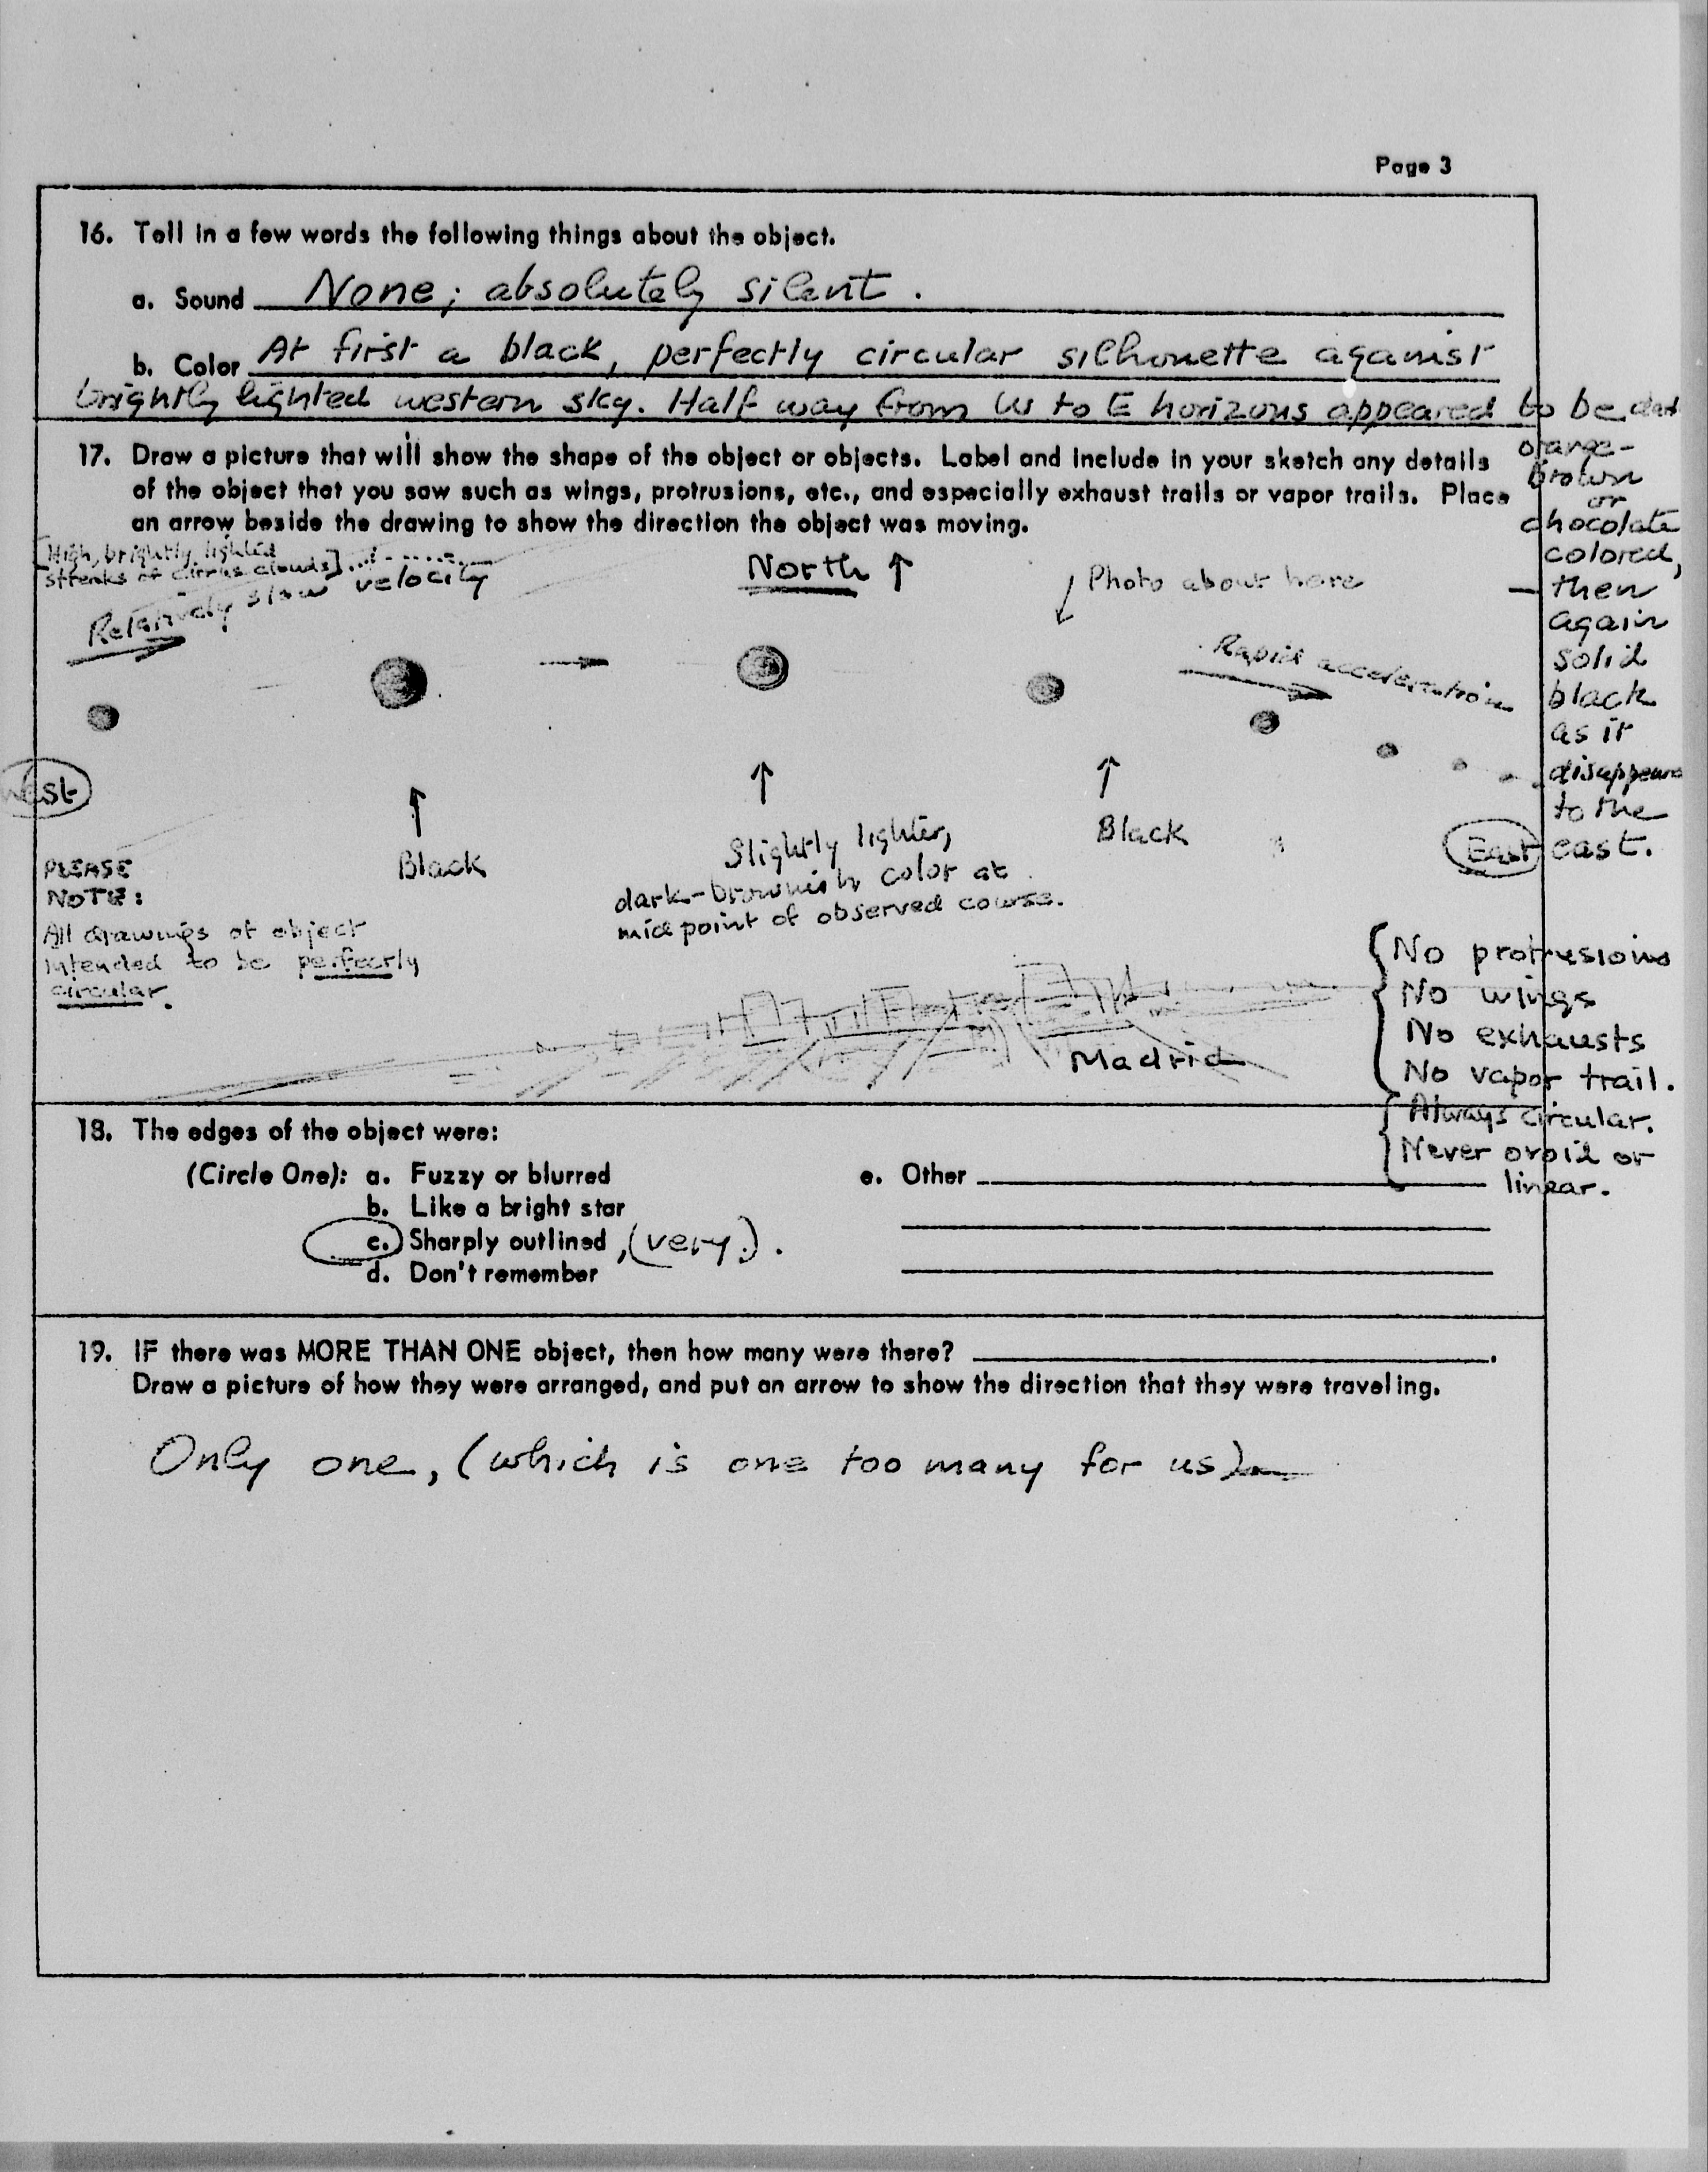 Page 3
16. Tell in a few words the following things about the object.
a. Sound None; absolutely silent.
b. Color At first a black, perfectly circular silhouette against
brightly lighted western sky. Half way from W to E horizons appeared to be
orange-
brown
or
chocolate
colored,
then
again
solid
black
as it
disappears
to the
east.
17. Draw a picture that will show the shape of the object or objects. Label and include in your sketch any details
of the object that you saw such as wings, protrusions, etc., and especially exhaust trails or vapor trails. Place
an arrow beside the drawing to show the direction the object was moving.
[High, brightly lighted
streaks of cirrus clouds]
Relatively slow velocity
North ↑
Photo about here
Rapid acceleration
West
East
Black
Slightly lighter,
dark-brownish color at
midpoint of observed course.
Black
PLEASE
NOTE:
All drawings of object
intended to be perfectly
circular.
Madrid
No protrusions
No wings
No exhausts
No vapor trail.
Always circular.
Never ovoid or
linear.
18. The edges of the object were:
(Circle One): a. Fuzzy or blurred
b. Like a bright star
c. Sharply outlined, (very.).
d. Don't remember
e. Other
19. IF there was MORE THAN ONE object, then how many were there?
Draw a picture of how they were arranged, and put an arrow to show the direction that they were traveling.
Only one, (which is one too many for us)